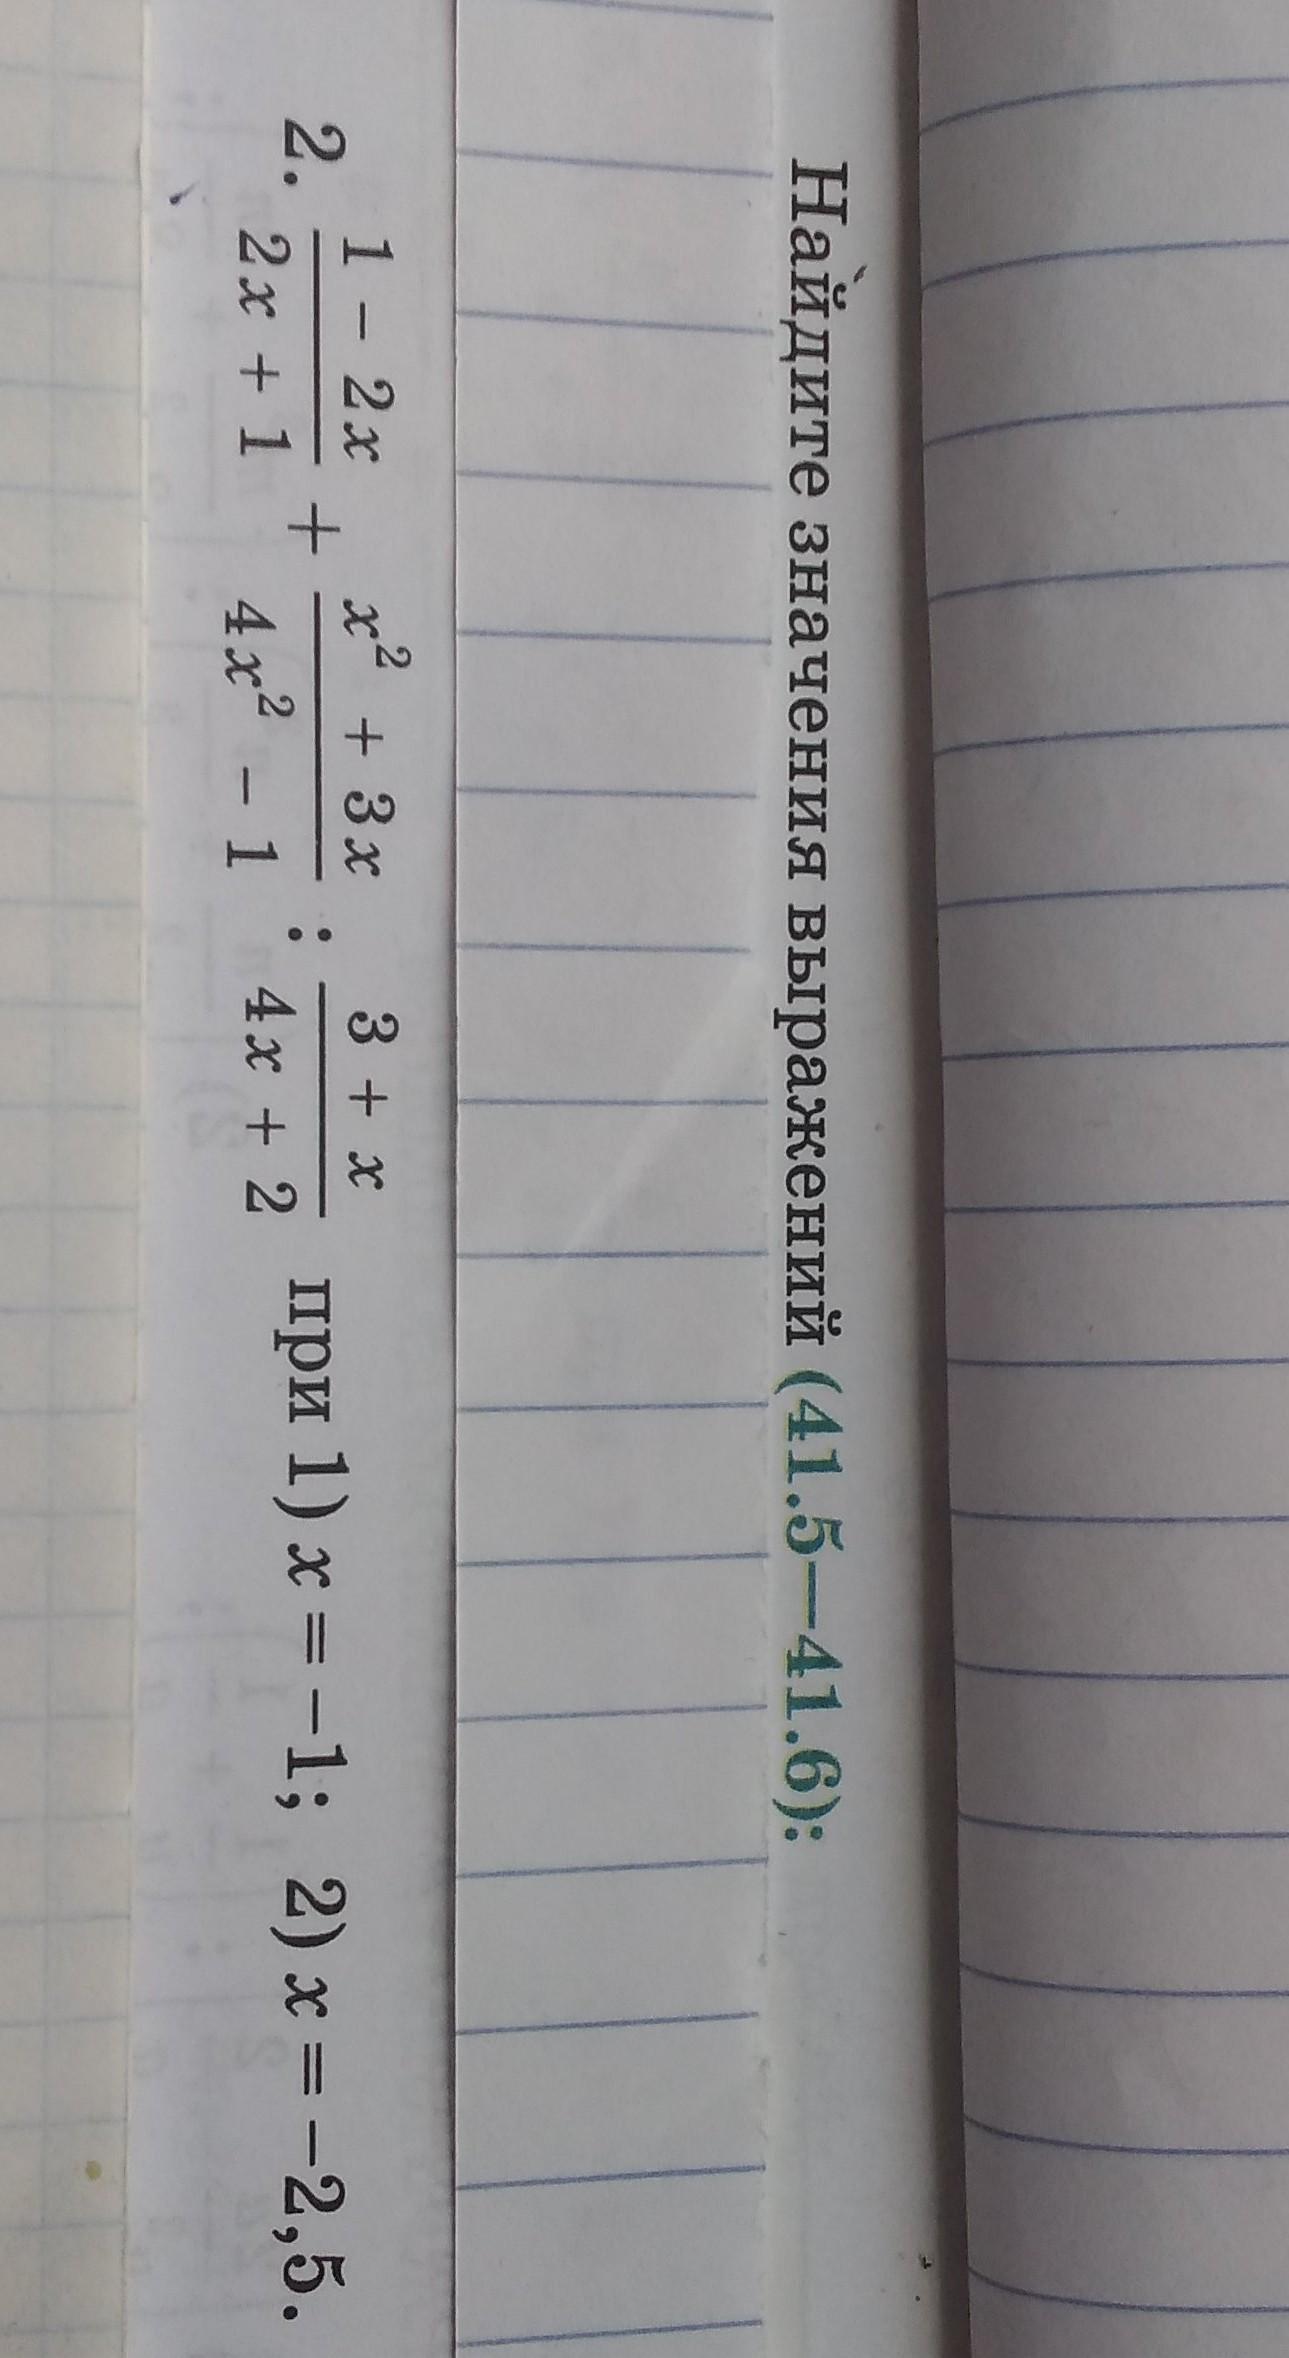 Найдите значения выражений (41.5—41.6):
2. \frac{1 - 2x}{2x + 1} + \frac{x^2 + 3x}{4x^2 - 1} : \frac{3 + x}{4x + 2} при 1) x = -1; 2) x = -2,5.